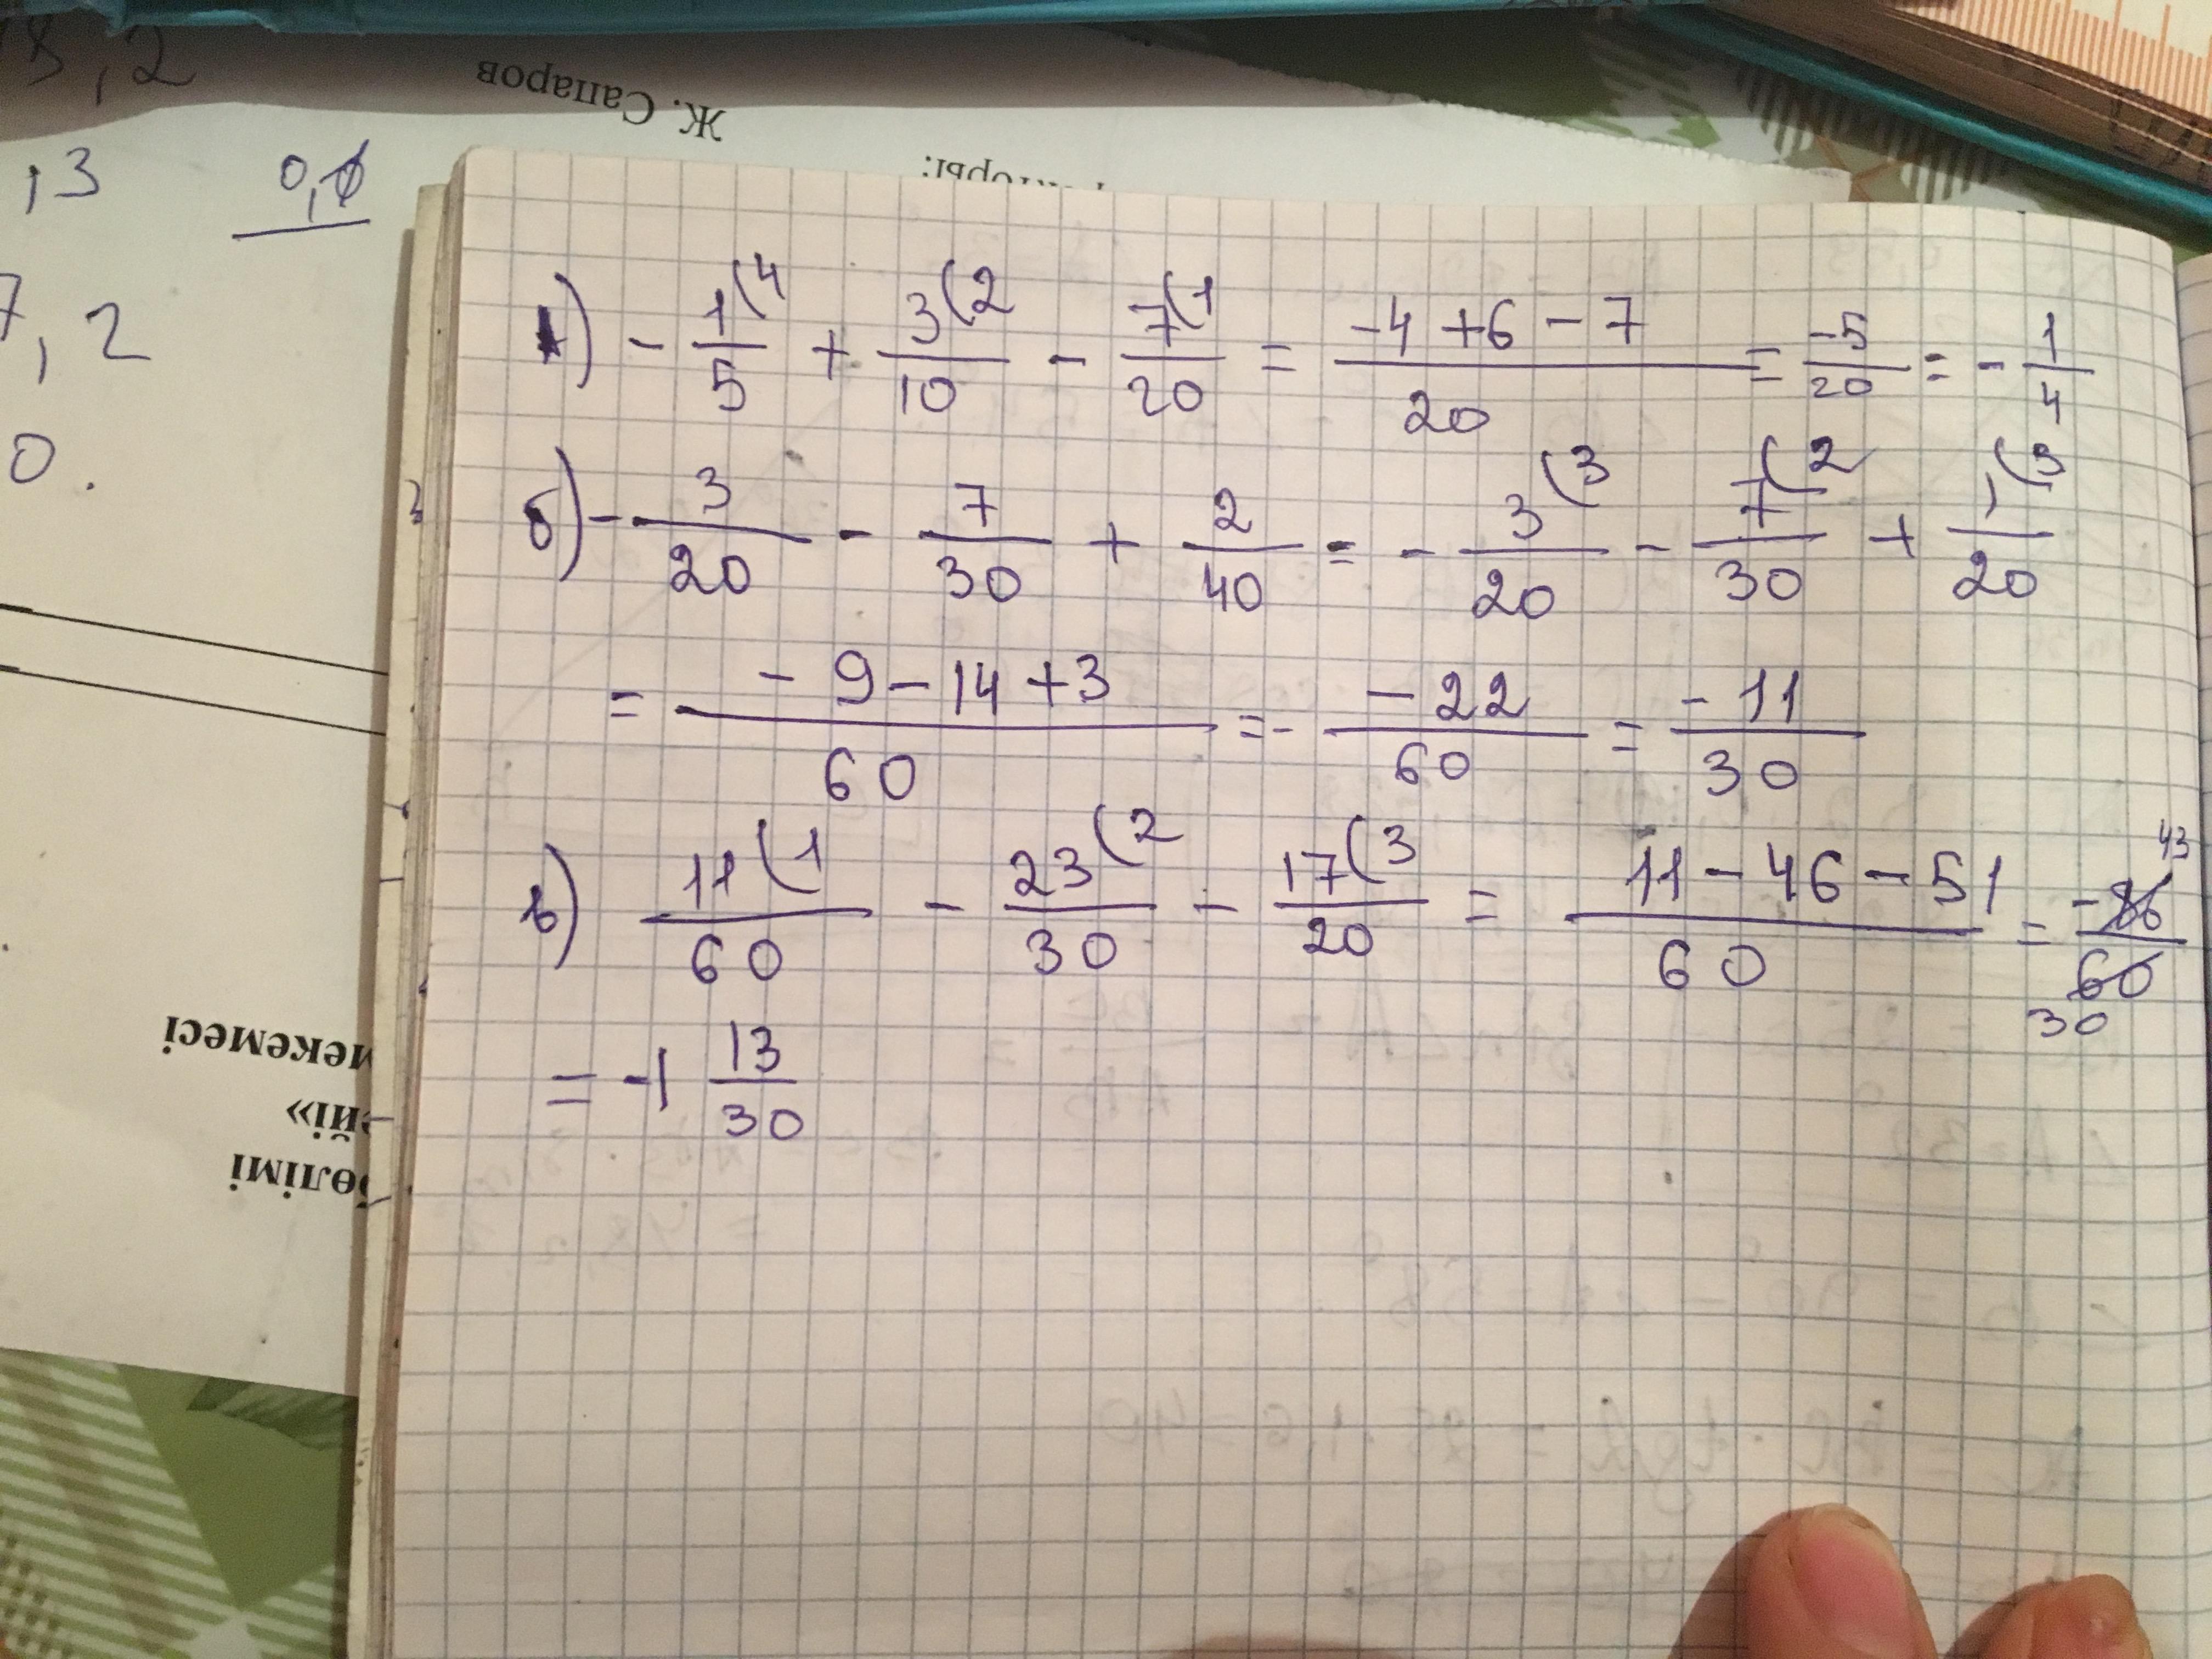 18,2
Ж. Сапаров
,3 0,1
7,2
0.
а) - 1/5 (4 + 3/10 (2 - 7/20 (1 = -4+6-7/20 = -5/20 = - 1/4
б) - 3/20 - 7/30 + 2/40 = - 3/20 (3 - 7/30 (2 + 1/20 (3
= -9-14+3/60 =- -22/60 = -11/30
в) 11/60 (1 - 23/30 (2 - 17/20 (3 = 11-46-51/60 = -86/60 43 30
= -1 13/30